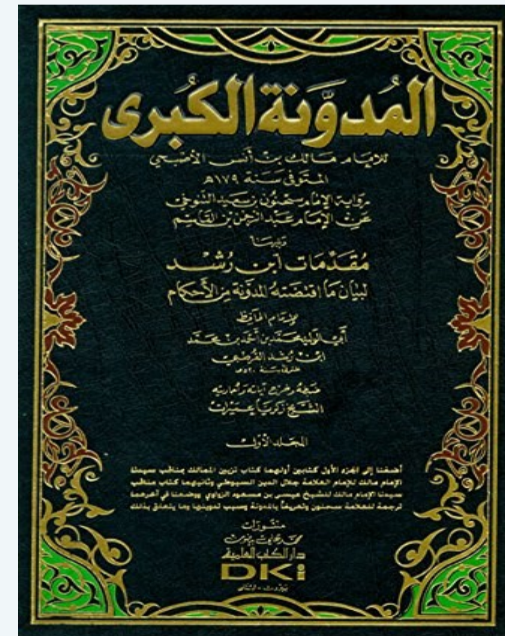 المُدوَّنة الكبرى
للإمام مالك بن أنس الأصبحي
المتوفى سنة ١٧٩هـ
رواية الإمام سحنون بن سعيد التنوخي
عن الإمام عبد الرحمن بن القاسم
ويليها
مُقدمات ابن رُشد
لبيان ما اقتضته المدونة من الأحكام
للإمام الحافظ
أبي الوليد محمد بن أحمد بن محمد
ابن رشد القرطبي
المتوفى سنة ٥٢٠هـ
ضبطه وخرج آياته وأحاديثه
الشيخ زكريا عميرات
المجلد الأول
أضفنا إلى الجزء الأول كتابين أولهما كتاب تزيين الممالك بمناقب سيدنا
الإمام مالك للإمام العلامة جلال الدين السيوطي وثانيهما كتاب مناقب
سيدنا الإمام مالك للشيخ عيسى بن مسعود الزواوي ووضعنا في آخرهما
ترجمة للعلامة سحنون وتعريفاً بالمدونة وسبب تدوينها وما يتعلق بذلك
منشورات
محمد علي بيضون
دار الكتب العلمية
DKi
بيروت - لبنان